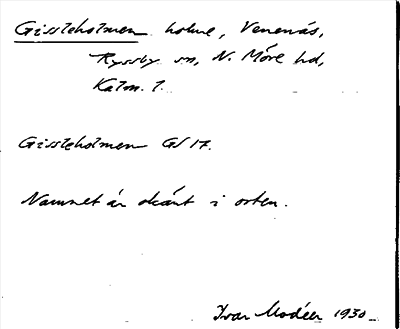 Gissleholmen holme, Venenäs,
Ryssby sn, N. Möre hd,
Kalm. l.
Gissleholmen GV 17.
Namnet är okänt i orten.
Ivar Modéer 1930